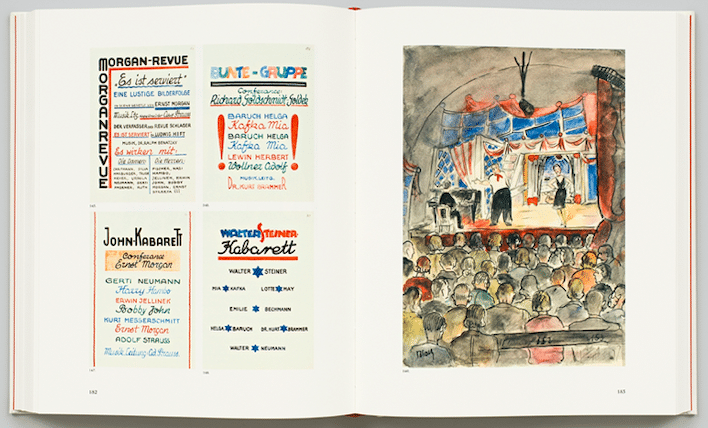 MORGAN-REVUE
MORGANREVUE
„Es ist serviert"
EINE LUSTIGE BILDERFOLGE
ERNST MORGAN
DER VERFASSER DER REVUE SCHLAGER
ES IST SERVIERT LUDWIG HIFT
MUSIK, DR. RALPH BENATZKY
Es wirken mit:
Die Damen: Die Herren:
BUNTE-GRUPPE
Conference:
Richard Goldschmidt, Golder
BARUCH HELGA
Kafka Mia
BARUCH HELGA
Kafka Mia
LEWIN HERBERT
Wollner Adolf
MUSIK. LEITG.
DR. KURT BRAMMER
!
!
JOHN-KABARETT
Conference
Ernst Morgan
GERTI NEUMANN
Harry Hambo
ERWIN JELLINEK
Bobby John
KURT MESSERSCHMITT
Ernst Morgan
ADOLF STRAUSS
Musik Leitung Ed. Strauss.
WALTER STEINER
Kabarett
WALTER STEINER
MIA KAFKA LOTTE MAY
EMILIE BECHMANN
HELGA BARUCH DR. KURT BRAMMER
WALTER NEUMANN
182
183